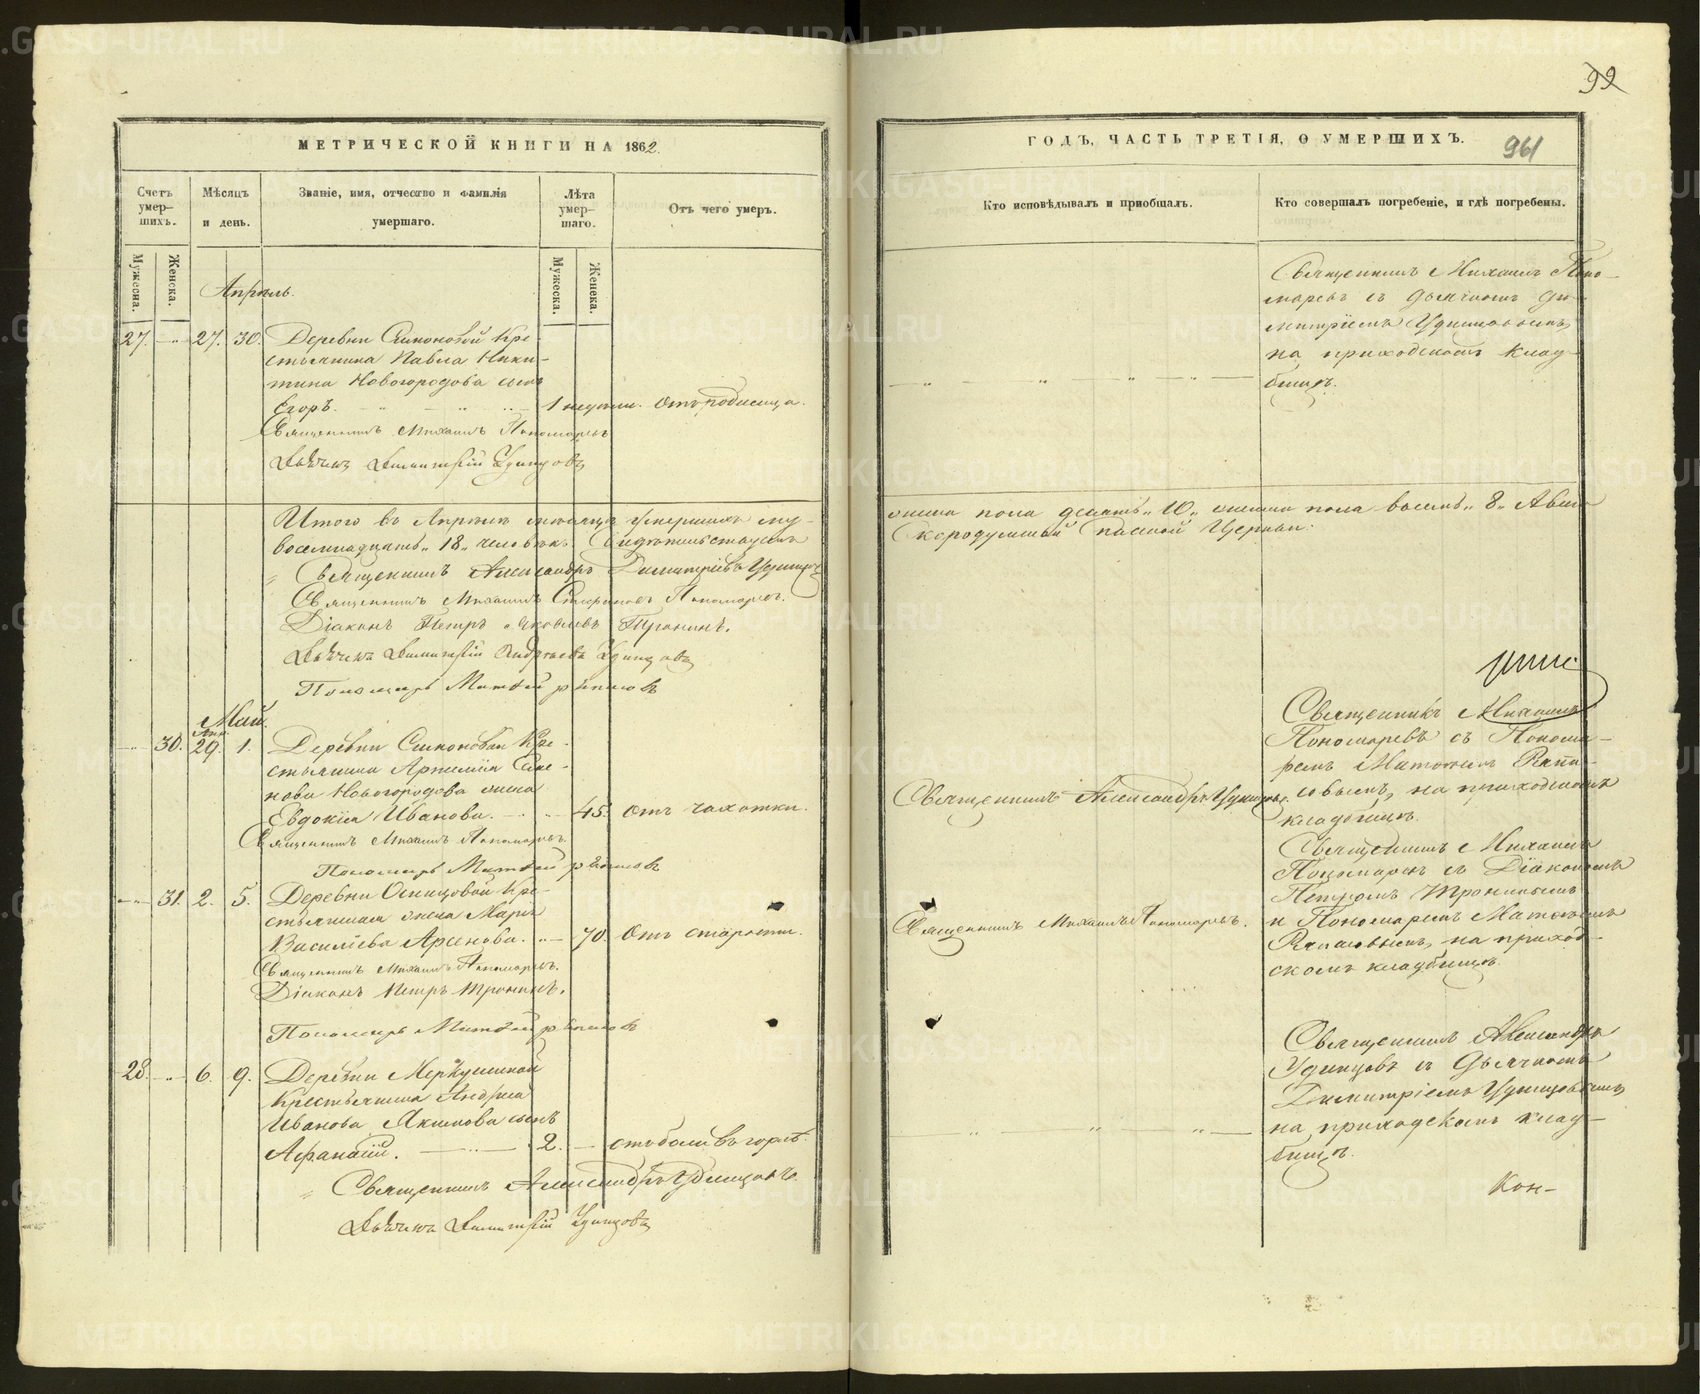 99
МЕТРИЧЕСКОЙ КНИГИ НА 1862
Счетъ умер-шихъ.
Мѣсяцъ и день.
Званіе, имя, отчество и фамилія умершаго.
Лѣта умер-шаго.
Отъ чего умеръ.
Мужеска.
Женска.
Мужеска.
Женска.
Апрѣль.
27. — 27. 30. Деревни Симоновой Кре-
стьянина Павла Ники-
тина Новогородова сынъ
Егоръ. 1 недѣли. Отъ родимца.
Священникъ Михаилъ Пономаревъ
Дьячекъ Димитрій Удинцовъ
Итого въ Апрѣлѣ мѣсяцѣ умершихъ му-
восемнадцать „18„ человѣкъ. Свидѣтельствуемъ
Священникъ Александръ Димитріевъ Удинцовъ
Священникъ Михаилъ Стефановъ Пономаревъ.
Діаконъ Петръ Яковлевъ Тронинъ.
Дьячекъ Димитрій Андреевъ Удинцовъ
Пономарь Матѳей
Май.
Апр.
— 30. 29. 1. Деревни Симоновой Кре-
стьянина Артемія Семе-
нова Новогородова жена
Евдокія Иванова. 45. Отъ чахотки.
Священникъ Михаилъ Пономаревъ.
Пономарь Матѳей
— 31. 2. 5. Деревни Осинцовой Кре-
стьянская жена Марія
Васильева Арсенова. 70. Отъ старости.
Священникъ Михаилъ Пономаревъ.
Діаконъ Петръ Тронинъ.
Пономарь Матѳей
28. — 6. 9. Деревни Меркушиной
Крестьянина Андрея
Иванова Якимова сынъ
Афанасій. 2. — отъ боли въ горлѣ.
Священникъ Александръ Удинцовъ
Дьячекъ Димитрій Удинцовъ
ГОДЪ, ЧАСТЬ ТРЕТІЯ, О УМЕРШИХЪ.
961
Кто исповѣдывалъ и пріобщалъ.
Кто совершалъ погребеніе, и гдѣ погребены.
Священникъ Михаилъ Поно-
маревъ съ дьячкомъ Ди-
митріемъ Удинцовымъ,
на приходскомъ клад-
бищѣ.
жеска пола десять „10„ женска пола восемь „8„
Церкви.
Священникъ Михаилъ
Пономаревъ съ Понома-
ремъ Матѳеемъ
на приходскомъ
кладбищѣ.
Священникъ Александръ Удинцовъ.
Священникъ Михаилъ
Пономаревъ съ Діакономъ
Петромъ Тронинымъ
и Пономаремъ Матѳеемъ
на приход-
скомъ кладбищѣ.
Священникъ Михаилъ Пономаревъ.
Священникъ Александръ
Удинцовъ съ Дьячкомъ
Димитріемъ Удинцовымъ
на приходскомъ клад-
бищѣ.
Кон-